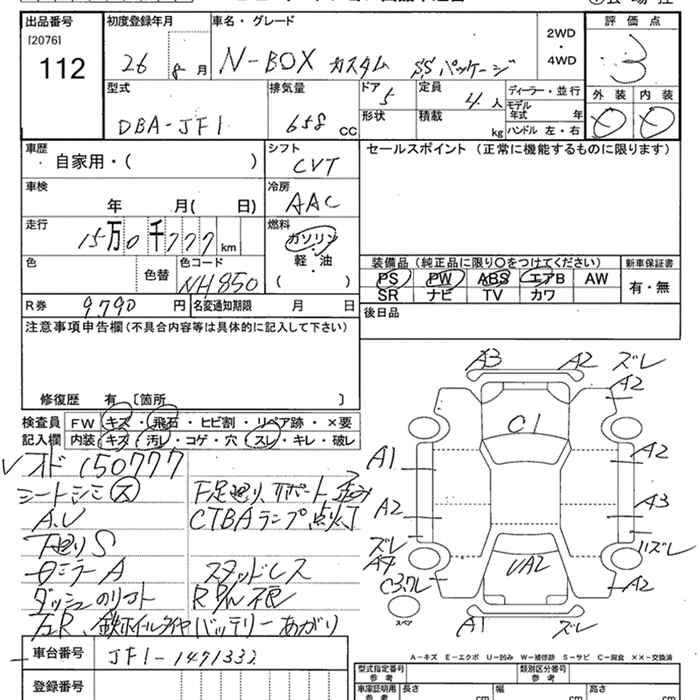 出品番号 初度登録年月 車名・グレード 評価点
[2076]
112 26 8月 N-BOX カスタム SSパッケージ 2WD・4WD 3
型式 排気量 ドア 5 定員 4人 ディーラー・並行 外装 内装
DBA-JF1 658 CC 形状 積載 kg モデル年式 年 ハンドル 左・右 × ×
車歴 シフト セールスポイント (正常に機能するものに限ります)
自家用・( ) CVT
車検 冷房
年 月( 日) AAC
走行 燃料
15万0千777km ガソリン・軽・油 ( )
色 色替 色コード NH850
装備品 (純正品に限り○をつけてください) 新車保証書
PS PW ABS エアB AW 有・無
SR ナビ TV カワ
R券 9,790円 名変通知期限 月 日 後日品
注意事項申告欄(不具合内容等は具体的に記入して下さい)
修復歴 有〔箇所 〕
検査員 FW キズ・飛石・ヒビ割・リペア跡・×要
記入欄 内装 キズ・汚レ・コゲ・穴・スレ・キレ・破レ
オド150777
シートシミ ス 下廻り サポート歪み
A.U CTBAランプ点灯
下廻りS
ミラーA スタッドレス
ダッシュ
鉄ホイルタイヤ バッテリーあがり
A3 A2 ズレ
A2
C1
A1 A2
A2 A3
ズレ ズレ
A4 UA2
A2
スペア
A1 ズレ
A-キズ E-エクボ U-凹み W-補修跡 S-サビ C-腐食 ××-交換済
車台番号 JF1-1471332
登録番号
型式指定番号 参考 類別区分番号 参考
車庫証明用 参考 長さ cm 幅 cm 高さ cm